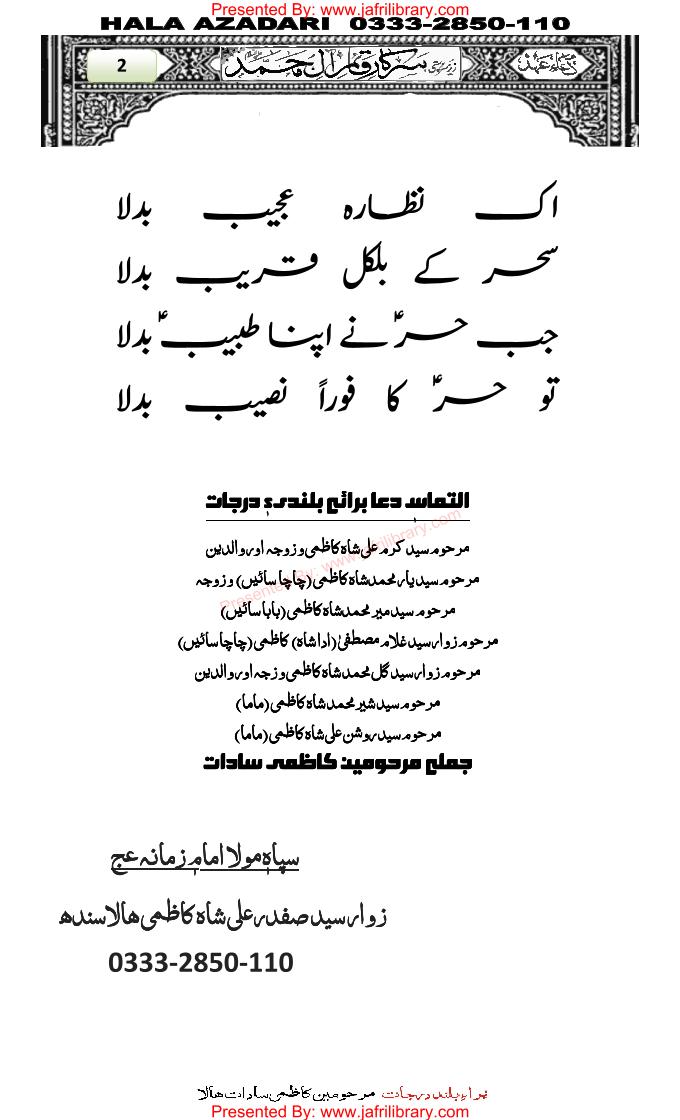 Presented By: www.jafrilibrary.com
HALA AZADARI 0333-2850-110
2
دعاء عہد
اک نظارہ عجیب بدلا
سحر کے بلکل قریب بدلا
جب حرؑ نے اپنا طبیبؑ بدلا
تو حرؑ کا فوراً نصیب بدلا
التماسِ دعا برائے بلندیءِ درجات
مرحوم سید کرم علی شاہ کاظمی و زوجہ اور والدین
مرحوم سید یار محمد شاہ کاظمی (چاچا سائیں) و زوجہ
مرحوم سید میر محمد شاہ کاظمی (بابا سائیں)
مرحوم زوار سید غلام مصطفیٰ (ادا شاہ) کاظمی (چاچا سائیں)
مرحوم زوار سید گل محمد شاہ کاظمی و زجہ اور والدین
مرحوم سید شیر محمد شاہ کاظمی (ماما)
مرحوم سید روشن علی شاہ کاظمی (ماما)
Presented By: www.jafrilibrary.com
جملہ مرحومین کاظمی سادات
سپاہِ مولا امامِ زمانہ عج
زوار سید صفدر علی شاہ کاظمی ھالا سندھ
0333-2850-110
براءِ بلند درجات مرحومین کاظمی سادات ھالا
Presented By: www.jafrilibrary.com